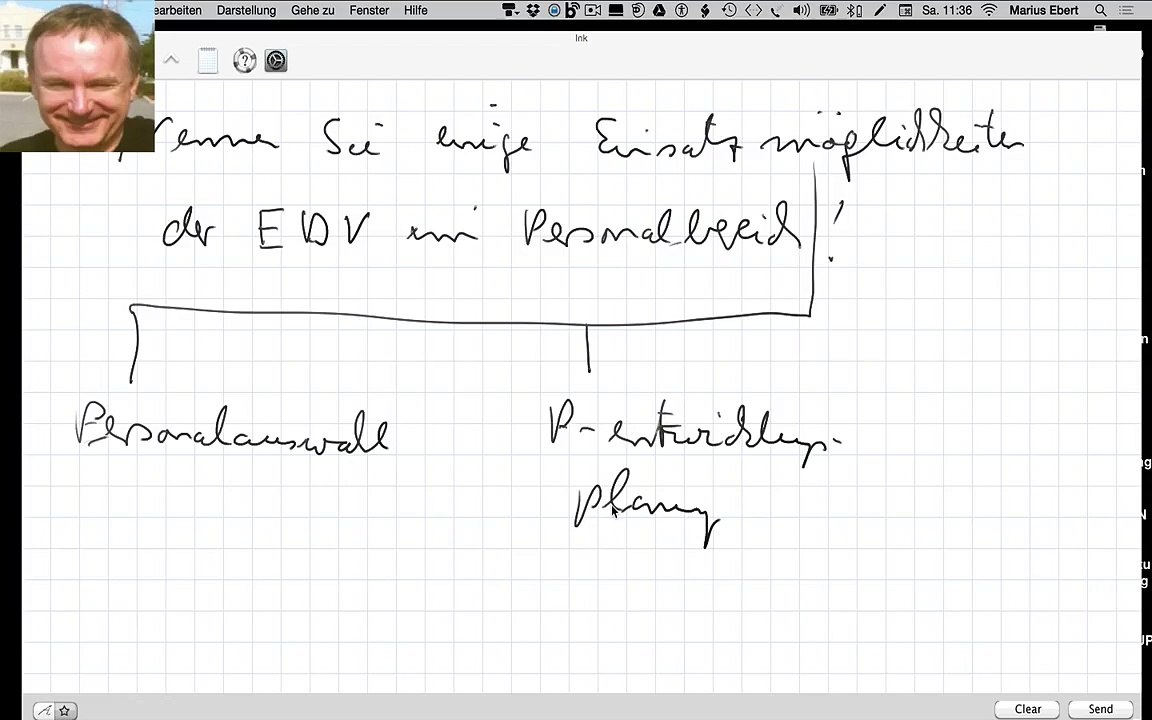 earbeiten Darstellung Gehe zu Fenster Hilfe Sa. 11:36 Marius Ebert
Ink
Nennen Sie einige Einsatzmöglichkeiten
der EDV im Personalbereich!
Personalauswahl
P-entwicklungs-
planung
Clear Send